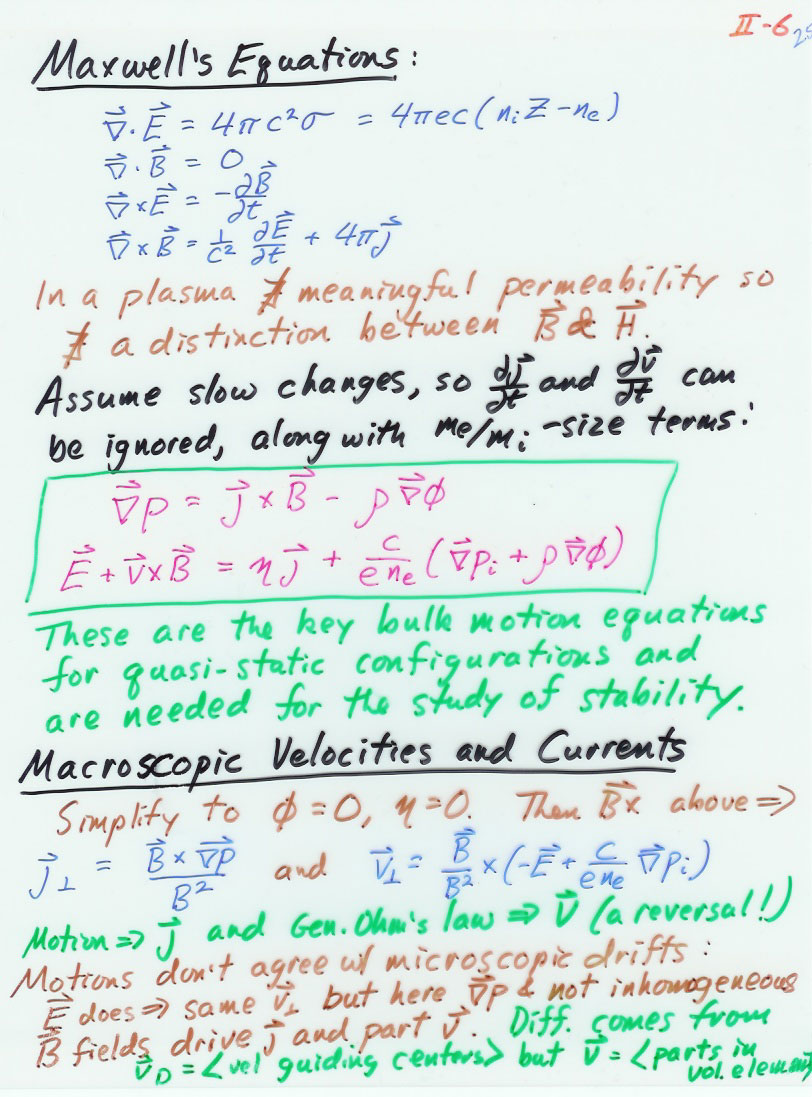 II-6
25
Maxwell's Equations:
∇⃗·E⃗ = 4πc²σ = 4πec(nᵢZ - nₑ)
∇⃗·B⃗ = 0
∇⃗×E⃗ = -∂B⃗/∂t
∇⃗×B⃗ = 1/c² ∂E⃗/∂t + 4πj⃗
In a plasma ∄ meaningful permeability so
∄ a distinction between B⃗ & H⃗.
Assume slow changes, so ∂j⃗/∂t and ∂v⃗/∂t can
be ignored, along with me/mᵢ-size terms:
∇⃗p = j⃗×B⃗ - ρ∇⃗ϕ
E⃗ + v⃗×B⃗ = ηj⃗ + c/enₑ (∇⃗pᵢ + ρ∇⃗ϕ)
These are the key bulk motion equations
for quasi-static configurations and
are needed for the study of stability.
Macroscopic Velocities and Currents
Simplify to ϕ=0, η=0. Then B⃗× above ⇒
j⃗⊥ = B⃗×∇⃗p/B² and v⃗⊥ = B⃗/B² × (-E⃗ + c/enₑ ∇⃗pᵢ)
Motion ⇒ j⃗ and Gen. Ohm's law ⇒ v⃗ (a reversal!)
Motions don't agree w/ microscopic drifts:
E⃗ does ⇒ same v⃗⊥ but here ∇⃗p & not inhomogeneous
B⃗ fields drive j⃗ and part v⃗. Diff. comes from
v⃗D = <vel guiding centers> but v⃗ = <parts in
vol. element